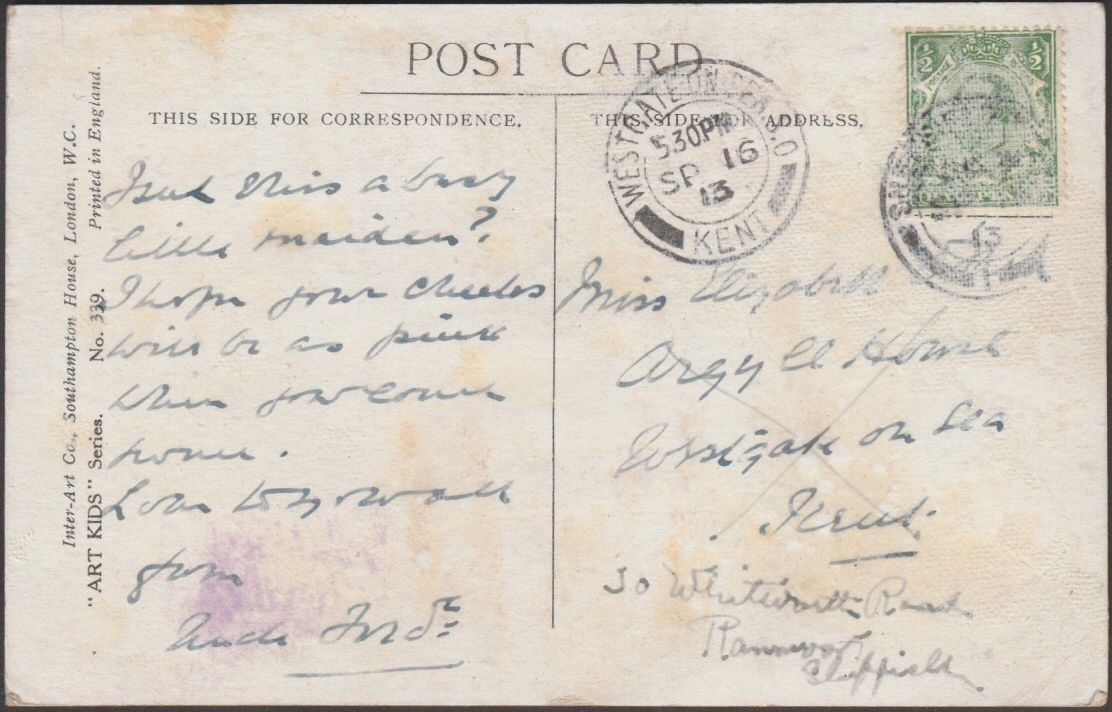 POST CARD
THIS SIDE FOR CORRESPONDENCE.
THIS SIDE FOR ADDRESS.
Inter-Art Co., Southampton House, London, W.C.
Printed in England.
"ART KIDS" Series.
No. 339.
½ ½
WESTGATE ON SEA S.O
5.30PM
SP 16
13
KENT
13
Isnt this a busy
little maiden?
I hope your cheeks
will be as pink
when you come
home.
Love to you all
from
Uncle
Miss Elizabeth
Argyll House
Westgate on Sea
Kent.
30 Whitworth Road
Ranmoor
Sheffield